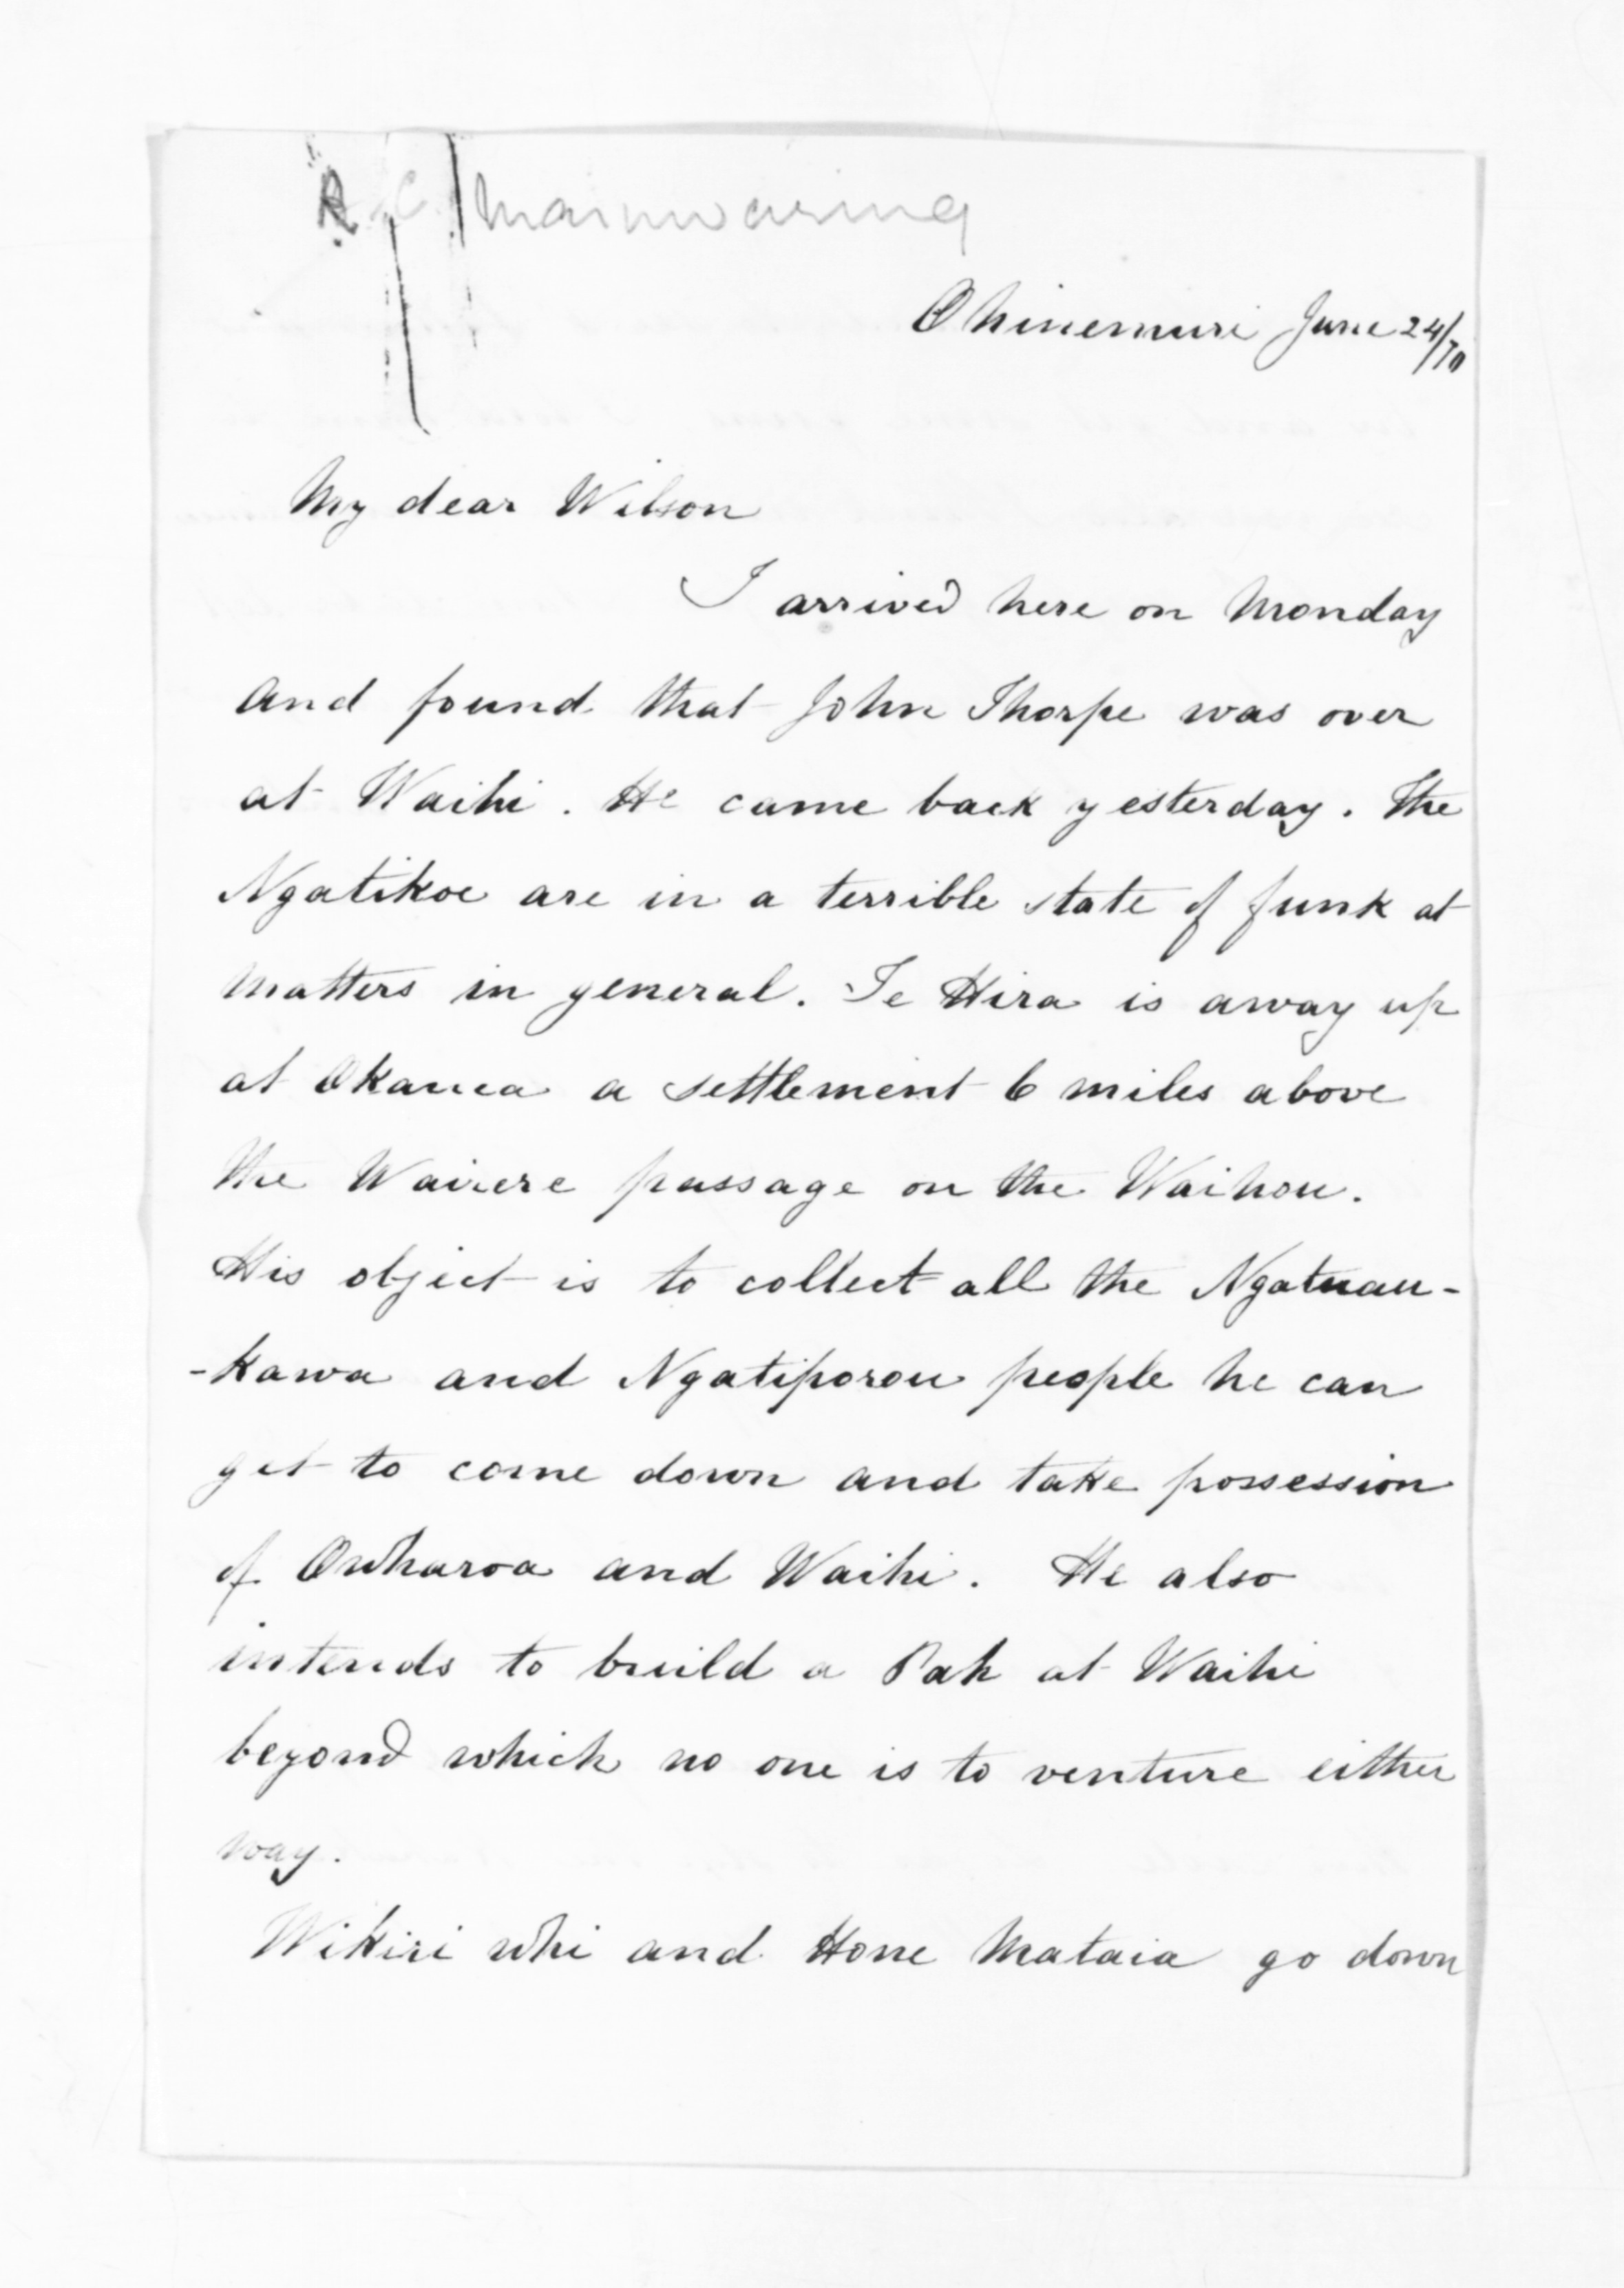 R. C. Mainwaring
Ohinemuri June 24/70
My dear Wilson
I arrived here on Monday
and found that John Thorpe was over
at Waihi. He came back yesterday. The
Ngatikoe are in a terrible state of funk at
matters in general. Te Hira is away up
at Okauea a settlement 6 miles above
the Wairere passage on the Waihou.
His object is to collect all the Ngatirau-
-kawa and Ngatiporou people he can
get to come down and take possession
of Owharoa and Waihi. He also
intends to build a Pah at Waihi
beyond which no one is to venture either
way.
Wikiri whi and Hone Mataia go down